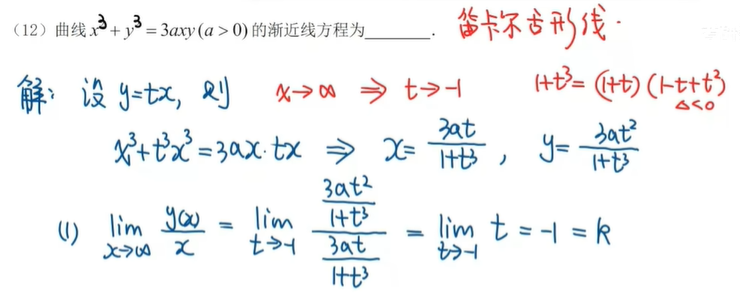 （12）曲线 x³+y³=3axy(a>0)的渐近线方程为______． 笛卡尔舌形线．
解：设 y=tx, 则 x→∞ ⇒ t→-1 1+t³=(1+t)(1-t+t²)
Δ<0
x³+t³x³=3ax·tx ⇒ x=3at/(1+t³), y=3at²/(1+t³)
(1) lim_{x→∞} y(x)/x = lim_{t→-1} (3at²/(1+t³))/(3at/(1+t³)) = lim_{t→-1} t = -1 = k